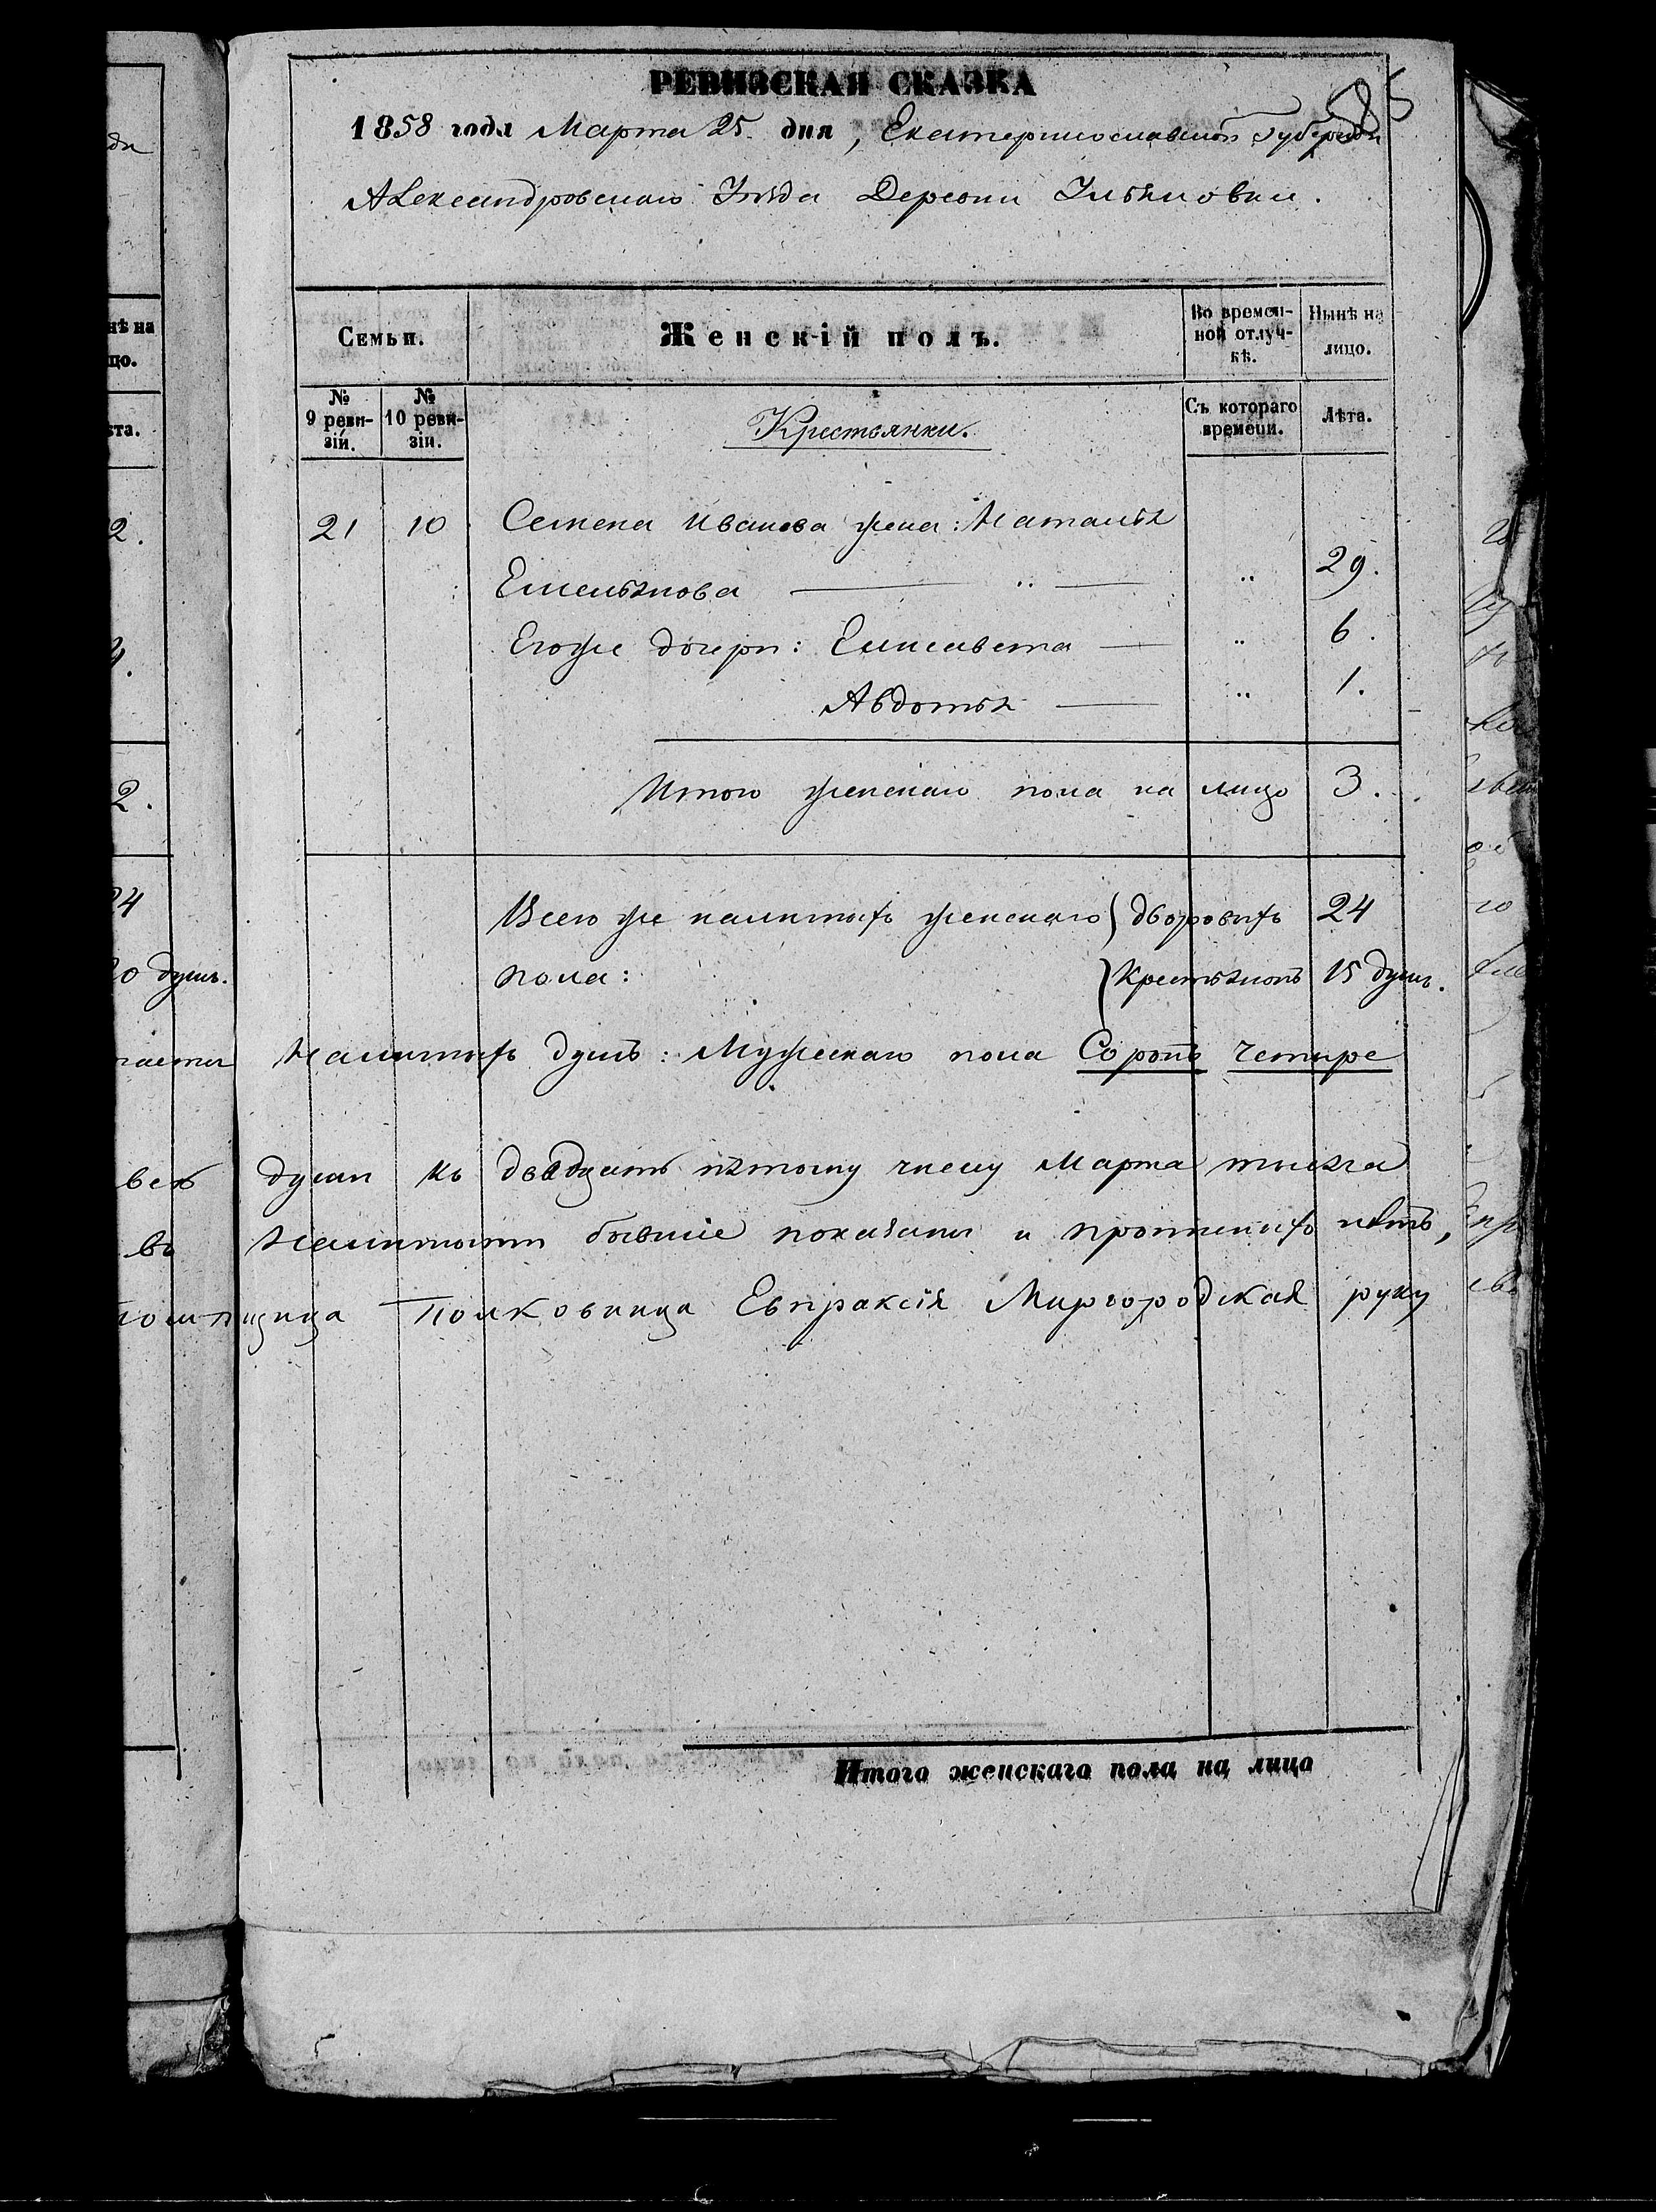 РЕВИЗСКАЯ СКАЗКА
585
1858 года Марта 25. дня, Екатеринославской Губернии
Александровскаго Уѣзда Деревни Ильяновки.
Семьи.
Женскій полъ.
Во времен-
ной отлуч-
кѣ.
Нынѣ на
лицо.
№
9 реви-
зіи.
№
10 реви-
зіи.
Крестьянки.
Съ котораго
времени.
Лѣта.
21 10 Семена Иванова жена: Наталья
Емельянова — „ — „ 29.
Егоже дочери: Елисавета — „ 6.
Авдотья — „ 1.
Итого женскаго пола на лицо 3.
Всего же налитыхъ женскаго } дворовыхъ 24
пола: } Крестьянокъ 15 душъ.
Налитыхъ душъ: Мужескаго пола Сорокъ Четыре
души къ двадцать пятому числу Марта тысяча
Налитности бывшіе показаны и прописныхъ нѣтъ,
помѣщица Полковница Евпраксія Миргородская руку
Итого женскаго пола на лицо
нѣ на
цо.
ста.
2.
4.
2.
24
0 душъ.
части
всѣ
въ